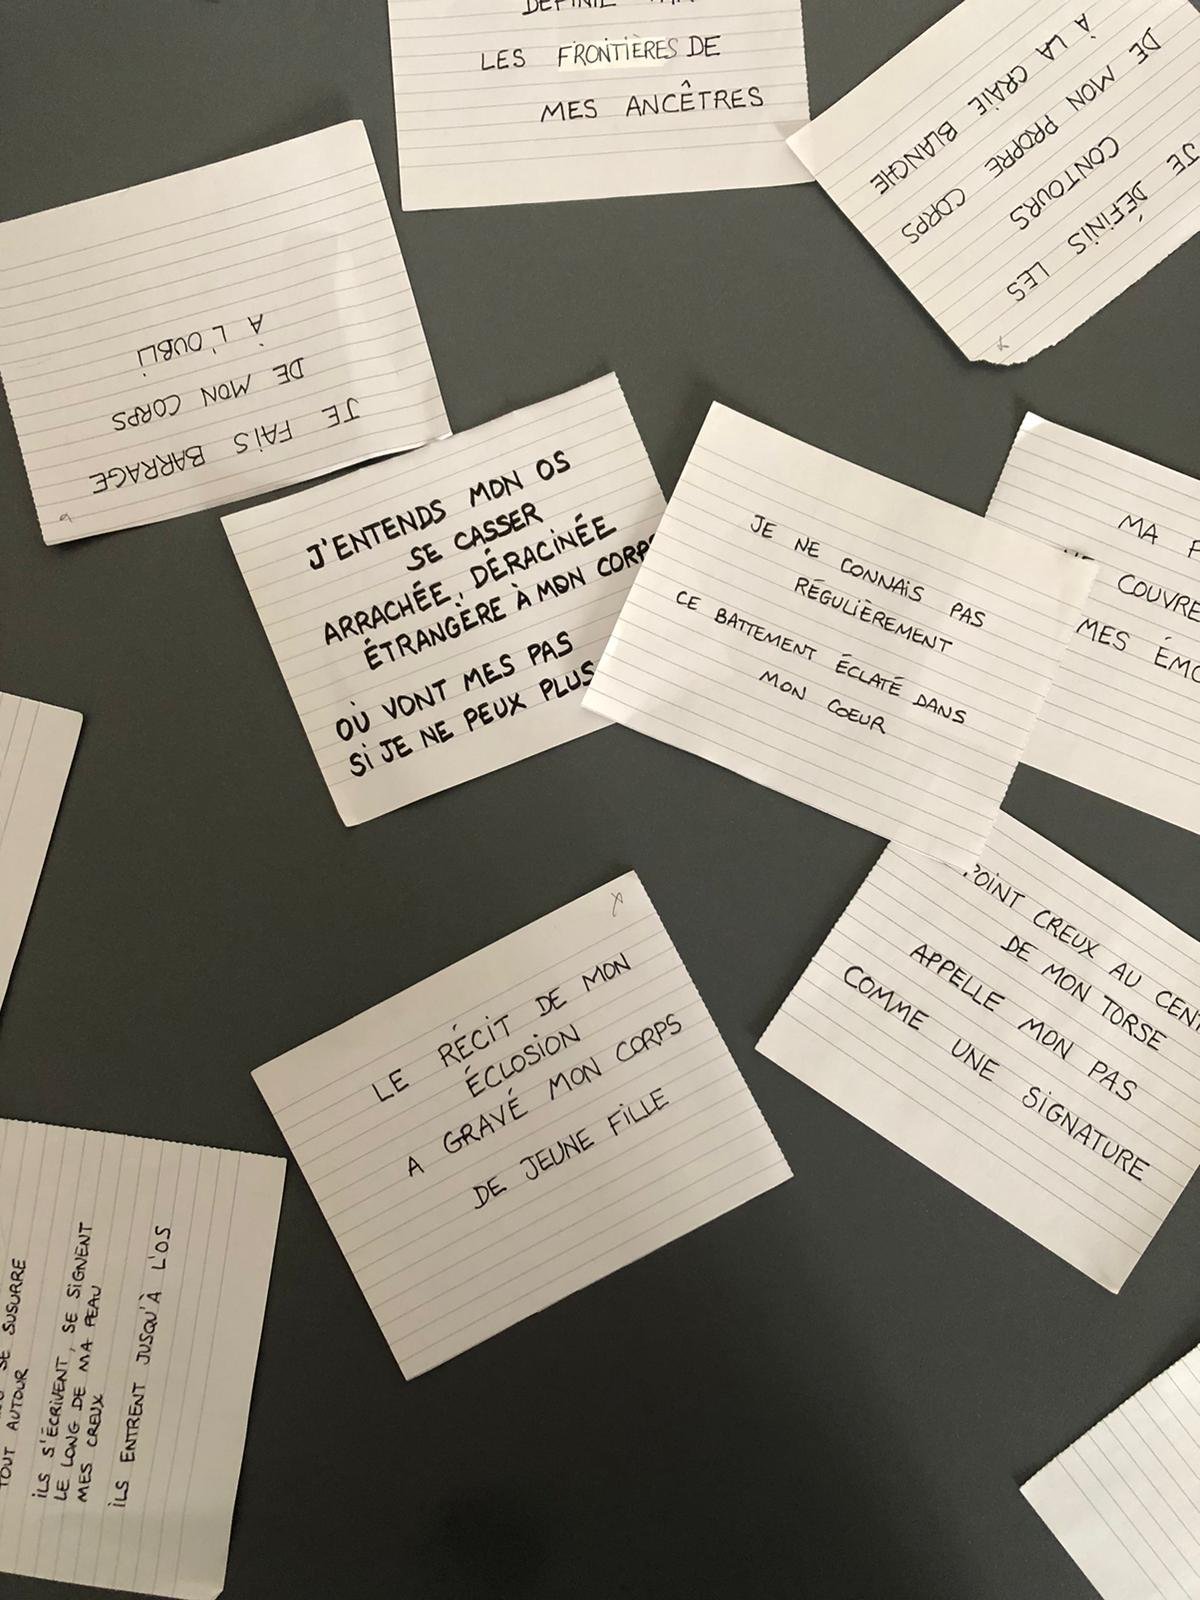 LES FRONTIÈRES DE
MES ANCÊTRES
JE DÉFINIS LES
CONTOURS
DE MON PROPRE CORPS
À LA CRAIE BLANCHE
JE FAIS BARRAGE
DE MON CORPS
À L'OUBLI
J'ENTENDS MON OS
SE CASSER
ARRACHÉE, DÉRACINÉE
ÉTRANGÈRE À MON CORPS
OÙ VONT MES PAS
Si JE NE PEUX PLUS
JE NE CONNAIS PAS
RÉGULIÈREMENT
CE BATTEMENT ÉCLATÉ DANS
MON COEUR
MA
COUVRE
MES
POINT CREUX AU
DE MON TORSE
APPELLE MON PAS
COMME UNE SIGNATURE
LE RÉCIT DE MON
ÉCLOSION
A GRAVÉ MON CORPS
DE JEUNE FILLE
SE SUSURRE
TOUT AUTOUR
ILS S'ÉCRIVENT, SE SIGNENT
LE LONG DE MA PEAU
MES CREUX
ILS ENTRENT JUSQU'À L'OS